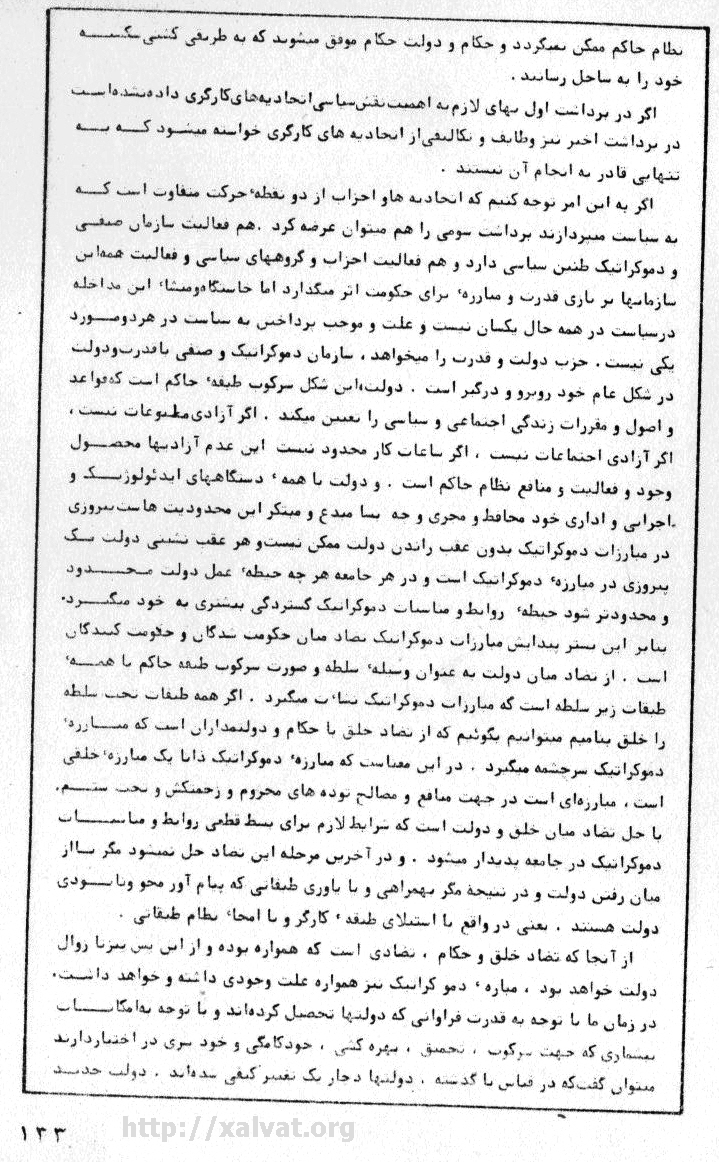 نظام حاکم ممکن نمیگردد و حکام و دولت حکام موفق میشوند که به طریقی کشتی
خود را به ساحل رسانند .
اگر در برداشت اول بهای لازم به اهمیت نقش سیاسی اتحادیه‌های کارگری داده نشده‌است
در برداشت اخیر نیز وظایف و تکالیفی از اتحادیه های کارگری خواسته میشود کــه بــه
تنهایی قادر به انجام آن نیستند .
اگر به این امر توجه کنیم که اتحادیه هاو احزاب از دو نقطه٬ حرکت متفاوت است کــه
به سیاست میپردازند برداشت سومی را هم میتوان عرضه کرد .هم فعالیت سازمان صنفــی
و دموکراتیک طنین سیاسی دارد و هم فعالیت احزاب و گروههای سیاسی و فعالیت همه‌این
سازمانها بر بازی قدرت و مبارزه٬ برای حکومت اثر میگذارد اما خاستگاه‌ومنشا٬ این مداخله
درسیاست در همه حال یکسان نیست و علت و موجب پرداختن به سیاست در هردومــورد
یکی نیست . حزب دولت و قدرت را میخواهد ، سازمان دموکراتیک و صنفی باقدرت‌ودولت
در شکل عام خود روبرو و درگیر است . دولت،این شکل سرکوب طبقه٬ حاکم است که‌قواعد
و اصول و مقررات زندگی اجتماعی و سیاسی را تعیین میکند . اگر آزادی‌مطبوعات نیست ،
اگر آزادی اجتماعات نیست ، اگر ساعات کار محدود نیست این عدم آزادیها محصــول
وجود و فعالیت و منافع نظام حاکم است . و دولت با همه ٬ دستگاههای ایدئولوژیــک و
اجرایی و اداری خود محافظ و مجری و چه بسا مبدع و مبتکر این محدودیت هاست‌پیروزی
در مبارزات دموکراتیک بدون عقب راندن دولت ممکن نیست‌و هر عقب نشینی دولت یــک
پیروزی در مبارزه٬ دموکراتیک است و در هر جامعه هر چه حیطه٬ عمل دولت محــدود
و محدودتر شود حیطه٬ روابط و مناسبات دموکراتیک گستردگی بیشتری به خود میگیــرد.
بنابر این بستر پیدایش مبارزات دموکراتیک تضاد میان حکومت شدگان و حکومت کنندگان
است . از تضاد میان دولت به عنوان وسیله٬ سلطه و صورت سرکوب طبقه حاکم با همــه٬
طبقات زیر سلطه است که مبارزات دموکراتیک نشات میگیرد . اگر همه طبقات تحت سلطه
را خلق بنامیم میتوانیم بگوئیم که از تضاد خلق با حکام و دولتمداران است که مبــارزه٬
دموکراتیک سرچشمه میگیرد . در این معناست که مبارزه٬ دموکراتیک ذاتا یک مبارزه٬ خلقی
است ، مبارزه‌ای است در جهت منافع و مصالح توده های محروم و زحمتکش و تحت ستــم.
با حل تضاد میان خلق و دولت است که شرایط لازم برای بسط قطعی روابط و مناسبــات
دموکراتیک در جامعه پدیدار میشود . و در آخرین مرحله این تضاد حل نمیشود مگر بــااز
میان رفتن دولت و در نتیجهٔ مگر بهمراهی و با یاوری طبقاتی که پیام آور محو ونابــودی
دولت هستند . یعنی در واقع با استیلای طبقه ٬ کارگر و با امحا٬ نظام طبقاتی .
از آنجا که تضاد خلق و حکام ، تضادی است که همواره بوده و از این پس نیزتا زوال
دولت خواهد بود ، مبارزه ٬ دمو کراتیک نیز همواره علت وجودی داشته و خواهد داشــت.
در زمان ما با توجه به قدرت فراوانی که دولتها تحصیل کرده‌اند و با توجه به‌امکانــات
بیشماری که جهت سرکوب ، تحمیق ، بهره کشی ، خودکامگی و خود سری در اختیاردارند
میتوان گفت‌که در قیاس با گذشته ، دولتها دچار یک تغییر کیفی شده‌اند . دولت جدیــد
۱۳۳
http://xalvat.org